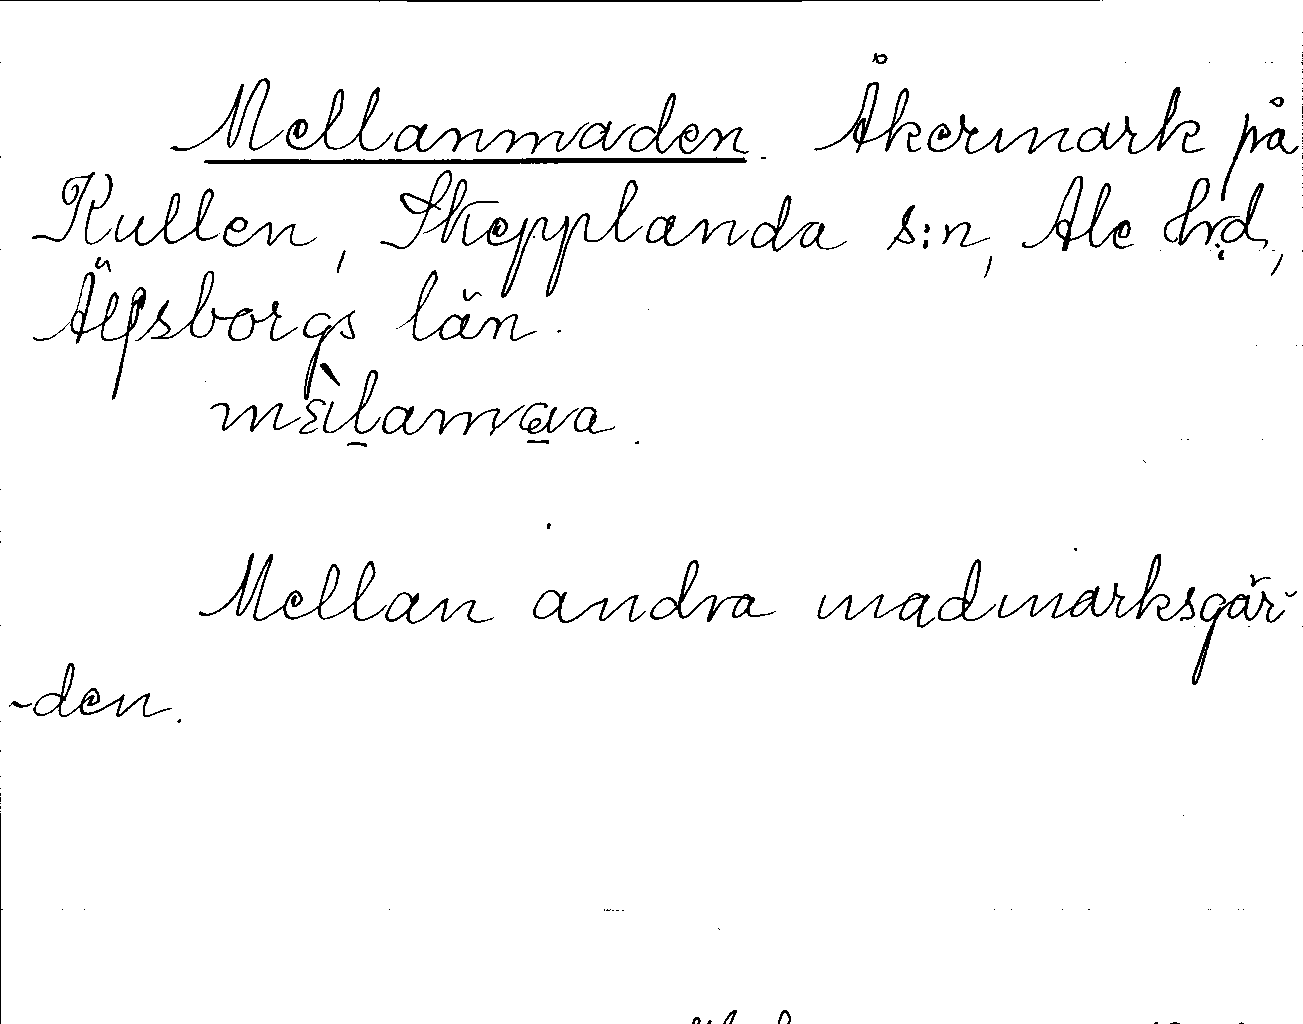 Mellanmaden. Åkermark på
Kullen, Skepplanda s:n, Ale hrd,
Älfsborgs län.
Mellan andra madmarksgär-
-den.